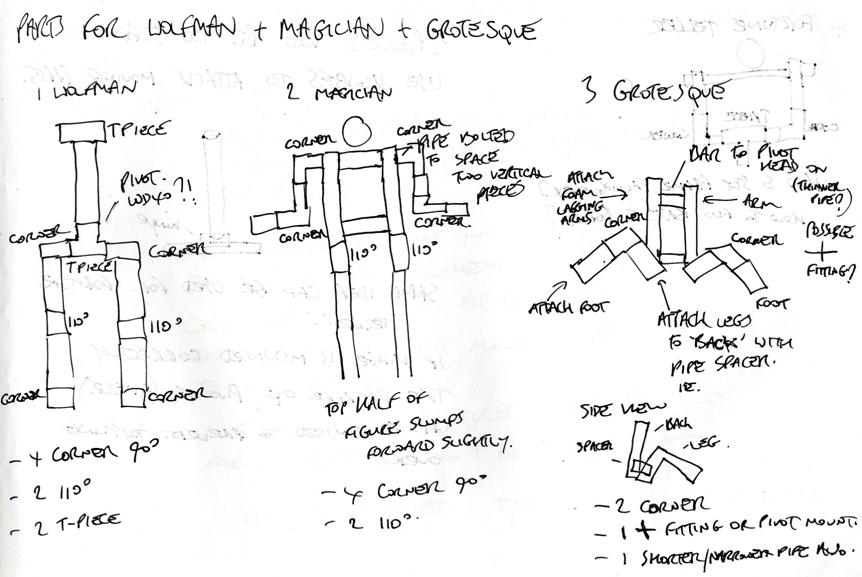 PARTS FOR WOLFMAN + MAGICIAN + GROTESQUE
1 WOLFMAN
T PIECE
PIVOT.
CORNER
CORNER
T PIECE
110°
110°
CORNER
CORNER
- 4 CORNER 90°
- 2 110°
- 2 T-PIECE
2 MAGICIAN
CORNER
CORNER
PIPE BOLTED
TO SPACE
TWO VERTICAL
PIECES
CORNER
CORNER
110°
110°
TOP HALF OF
FIGURE SLUMPS
FORWARD SLIGHTLY.
- 4 CORNER 90°
- 2 110°.
3 GROTESQUE
BAR TO PIVOT
HEAD ON
(THINNER
PIPE?)
ATTACH
FOAM
LAGGING
ARMS
ARM
CORNER
CORNER
POSSIBLE
+
FITTING?
ATTACH FOOT
FOOT
ATTACH LEGS
TO 'BACK' WITH
PIPE SPACER.
IE.
SIDE VIEW
BACK
SPACER
LEG.
- 2 CORNER
- 1 + FITTING OR PIVOT MOUNT.
- 1 SHORTER/NARROWER PIPE
TABLE
USE HINGES TO ATTACH